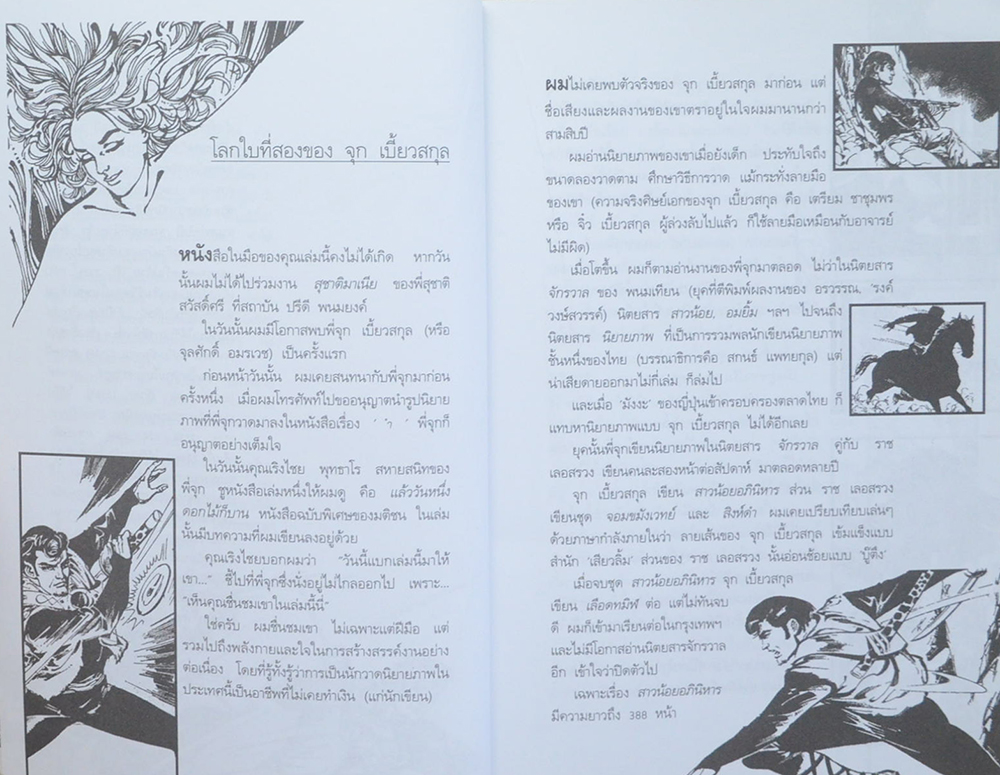 โลกใบที่สองของ จุก เบี้ยวสกุล
หนังสือในมือของคุณเล่มนี้คงไม่ได้เกิด หากวัน
นั้นผมไม่ได้ไปร่วมงาน สุชาติมาเนีย ของพี่สุชาติ
สวัสดิ์ศรี ที่สถาบัน ปรีดี พนมยงค์
ในวันนั้นผมมีโอกาสพบพี่จุก เบี้ยวสกุล (หรือ
จุลศักดิ์ อมรเวช) เป็นครั้งแรก
ก่อนหน้าวันนั้น ผมเคยสนทนากับพี่จุกมาก่อน
ครั้งหนึ่ง เมื่อผมโทรศัพท์ไปขออนุญาตนำรูปนิยาย
ภาพที่พี่จุกวาดมาลงในหนังสือเรื่อง ' 'า ' พี่จุกก็
อนุญาตอย่างเต็มใจ
ในวันนั้นคุณเริงไชย พุทธาโร สหายสนิทของ
พี่จุก ชูหนังสือเล่มหนึ่งให้ผมดู คือ แล้ววันหนึ่ง
ดอกไม้ก็บาน หนังสือฉบับพิเศษของมติชน ในเล่ม
นั้นมีบทความที่ผมเขียนลงอยู่ด้วย
คุณเริงไชยบอกผมว่า "วันนี้แบกเล่มนี้มาให้
เขา..." ชี้ไปที่พี่จุกซึ่งนั่งอยู่ไม่ไกลออกไป เพราะ...
"เห็นคุณชื่นชมเขาในเล่มนี้นี่"
ใช่ครับ ผมชื่นชมเขา ไม่เฉพาะแต่ฝีมือ แต่
รวมไปถึงพลังกายและใจในการสร้างสรรค์งานอย่าง
ต่อเนื่อง โดยที่รู้ทั้งรู้ว่าการเป็นนักวาดนิยายภาพใน
ประเทศนี้เป็นอาชีพที่ไม่เคยทำเงิน (แก่นักเขียน)
ผมไม่เคยพบตัวจริงของ จุก เบี้ยวสกุล มาก่อน แต่
ชื่อเสียงและผลงานของเขาตราอยู่ในใจผมมานานกว่า
สามสิบปี
ผมอ่านนิยายภาพของเขาเมื่อยังเด็ก ประทับใจถึง
ขนาดลองวาดตาม ศึกษาวิธีการวาด แม้กระทั่งลายมือ
ของเขา (ความจริงศิษย์เอกของจุก เบี้ยวสกุล คือ เตรียม ชาชุมพร
หรือ จิ๋ว เบี้ยวสกุล ผู้ล่วงลับไปแล้ว ก็ใช้ลายมือเหมือนกับอาจารย์
ไม่มีผิด)
เมื่อโตขึ้น ผมก็ตามอ่านงานของพี่จุกมาตลอด ไม่ว่าในนิตยสาร
จักรวาล ของ พนมเทียน (ยุคที่ตีพิมพ์ผลงานของ อรวรรณ, 'รงค์
วงษ์สวรรค์) นิตยสาร สาวน้อย, อมยิ้ม ฯลฯ ไปจนถึง
นิตยสาร นิยายภาพ ที่เป็นการรวมพลนักเขียนนิยายภาพ
ชั้นหนึ่งของไทย (บรรณาธิการคือ สกนธ์ แพทยกุล) แต่
น่าเสียดายออกมาไม่กี่เล่ม ก็ล่มไป
และเมื่อ 'มังงะ' ของญี่ปุ่นเข้าครอบครองตลาดไทย ก็
แทบหานิยายภาพแบบ จุก เบี้ยวสกุล ไม่ได้อีกเลย
ยุคนั้นพี่จุกเขียนนิยายภาพในนิตยสาร จักรวาล คู่กับ ราช
เลอสรวง เขียนคนละสองหน้าต่อสัปดาห์ มาตลอดหลายปี
จุก เบี้ยวสกุล เขียน สาวน้อยอภินิหาร ส่วน ราช เลอสรวง
เขียนชุด จอมขมังเวทย์ และ สิงห์ดำ ผมเคยเปรียบเทียบเล่นๆ
ด้วยภาษากำลังภายในว่า ลายเส้นของ จุก เบี้ยวสกุล เข้มแข็งแบบ
สำนัก 'เสียวลิ้ม' ส่วนของ ราช เลอสรวง นั้นอ่อนช้อยแบบ 'บู๊ตึ๊ง'
เมื่อจบชุด สาวน้อยอภินิหาร จุก เบี้ยวสกุล
เขียน เลือดทมิฬ ต่อ แต่ไม่ทันจบ
ดี ผมก็เข้ามาเรียนต่อในกรุงเทพฯ
และไม่มีโอกาสอ่านนิตยสารจักรวาล
อีก เข้าใจว่าปิดตัวไป
เฉพาะเรื่อง สาวน้อยอภินิหาร
มีความยาวถึง 388 หน้า